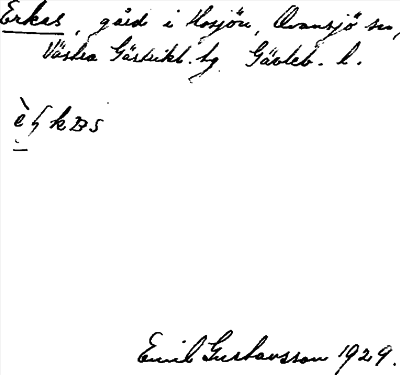 Erkas, gård i Hosjön, Ovansjö sn,
Västra Gästrikl. tg Gävleb. l.
Emil Gustavsson 1929.